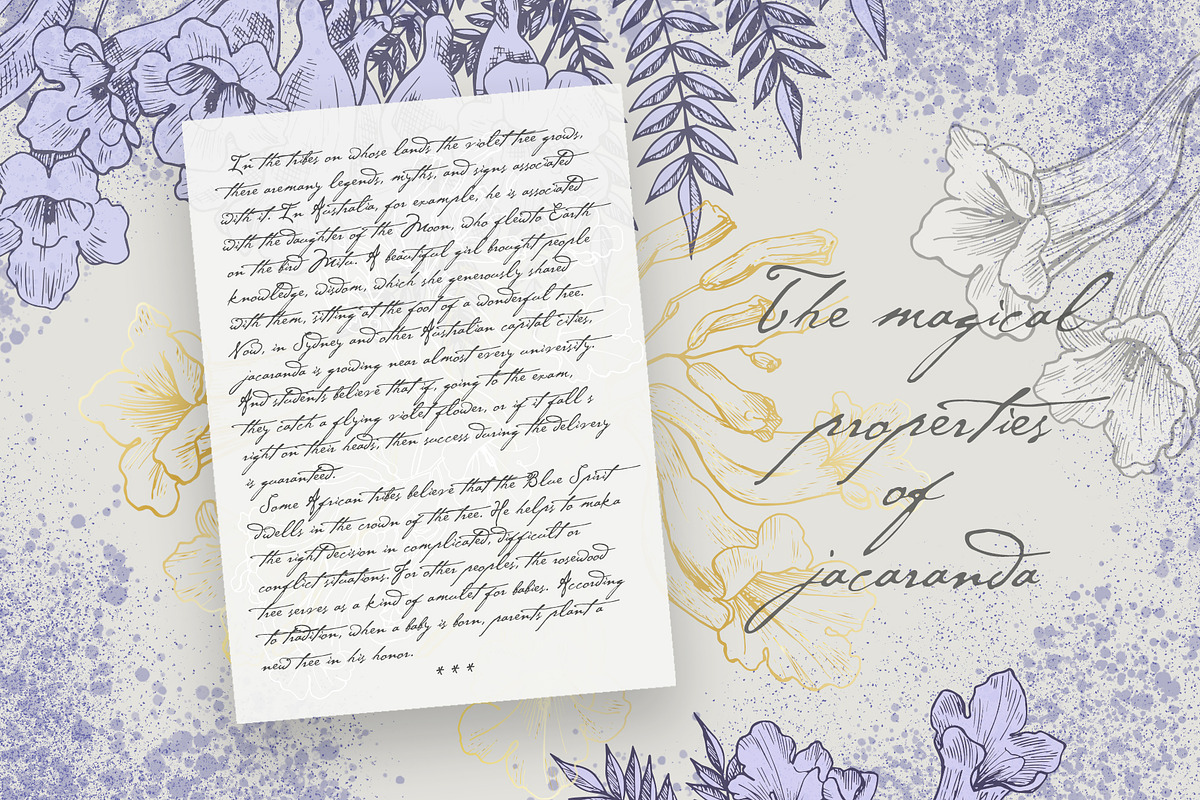 In the tribes on whose lands the violet tree grows,
there aremany legends, myths, and signs associated
with it. In Australia, for example, he is associated
with the daughter of the Moon, who flewto Earth
on the bird Mitu. A beautiful girl brought people
knowledge, wisdom, which she generously shared
with them, sitting at the foot of a wonderful tree.
Now, in Sydney and other Australian capital cities,
jacaranda is growing near almost every university.
And students believe that if, going to the exam,
they catch a flying violet flower, or if it fall s
right on their heads, then success during the delivery
is guaranteed.
Some African tribes believe that the Blue Spirit
dwells in the crown of the tree. He helps to maka
the right decision in complicated, difficult or
conflict situations. For other peoples, the rosewood
tree serves as a kind of amulet for babies. According
to tradition, when a baby is born, parents plant a
new tree in his honor.
* * *
The magical
properties
of
jacaranda